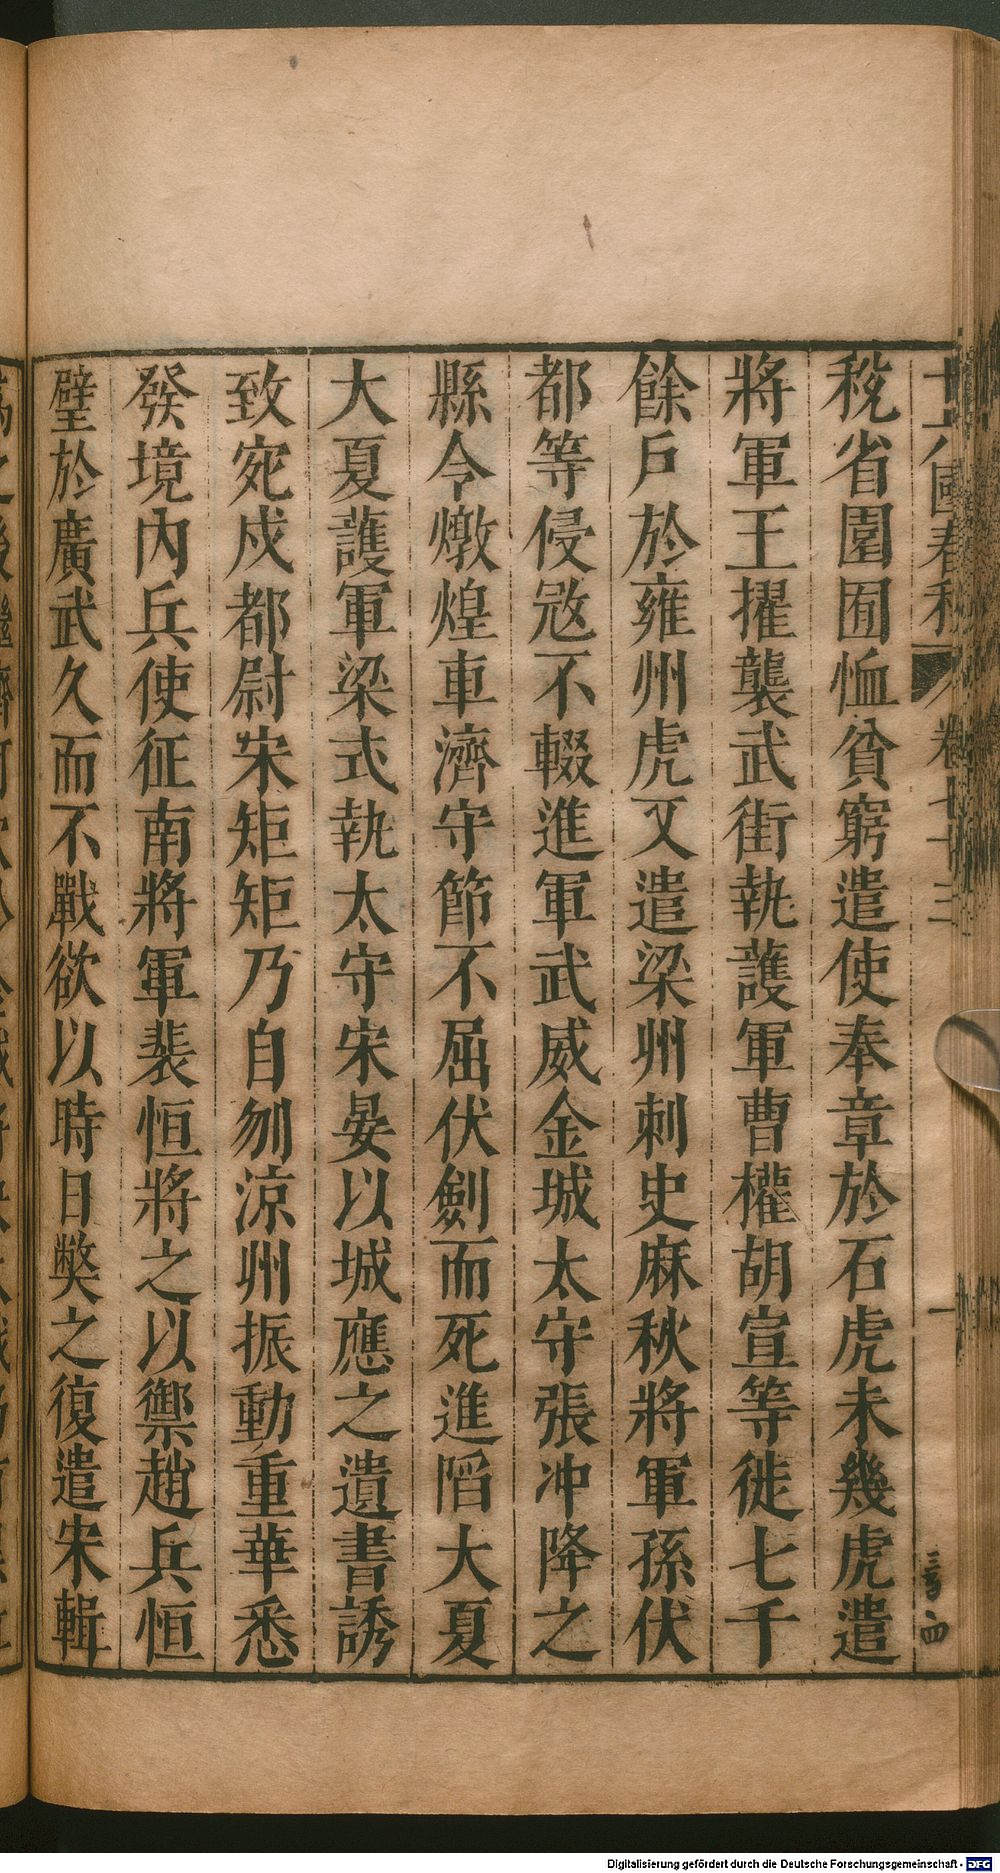 十六國春秋 卷七十三 一
稅省園囿恤貧窮遣使奉章於石虎未幾虎遣
將軍王擢襲武街執護軍曹權胡宣等徙七千
餘戶於雍州虎又遣梁州刺史麻秋將軍孫伏
都等侵寇不輟進軍武威金城太守張冲降之
縣令燉煌車濟守節不屈伏劍而死進陷大夏
大夏護軍梁式執太守宋晏以城應之遺書誘
致宛戍都尉宋矩矩乃自刎涼州振動重華悉
發境內兵使征南將軍裴恒將之以禦趙兵恒
壁於廣武久而不戰欲以時日獘之復遣宋輯
Digitalisierung gefördert durch die Deutsche Forschungsgemeinschaft - DFG